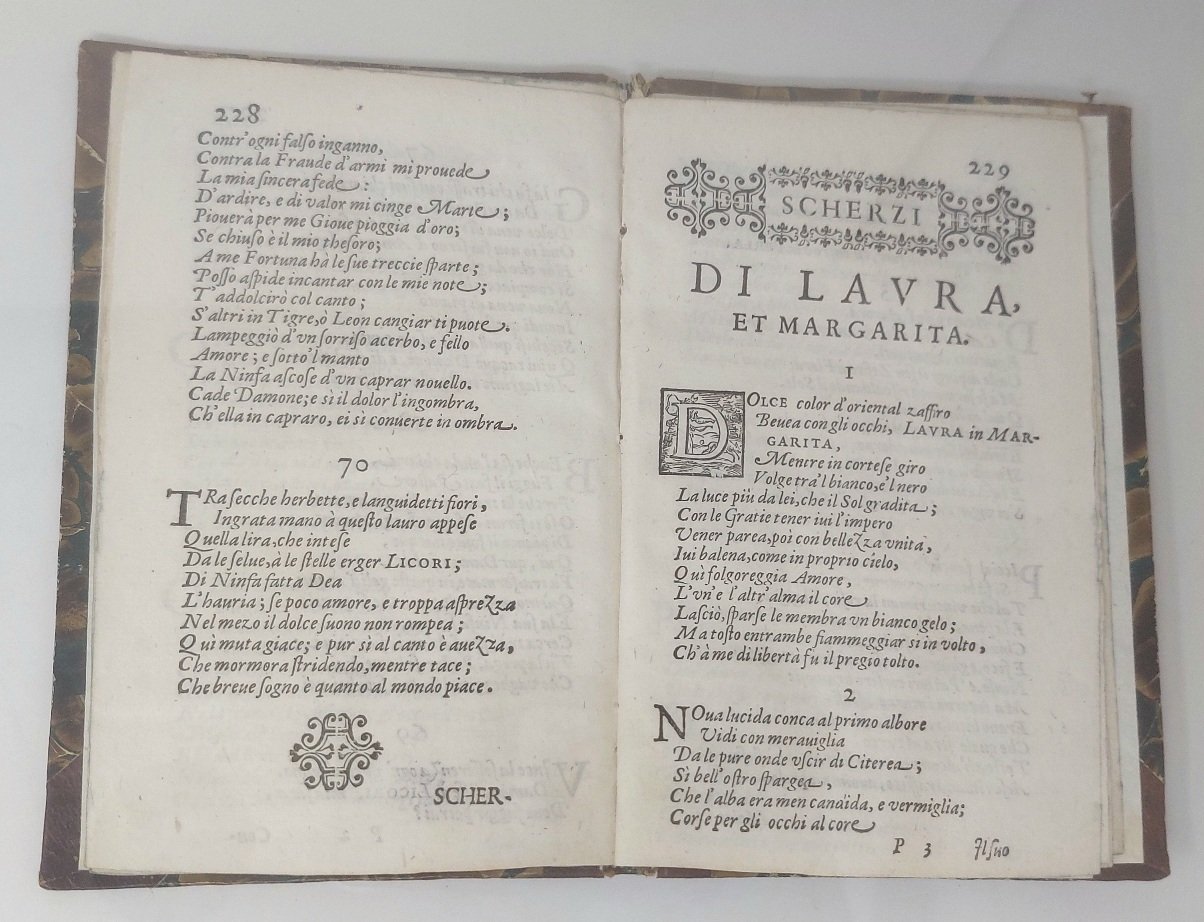 228
Contr'ogni falso inganno,
Contra la Fraude d'armi mi prouede
La mia sincera fede :
D'ardire, e di valor mi cinge Marte ;
Piouerà per me Gioue pioggia d'oro;
Se chiuso è il mio thesoro;
A me Fortuna hà le sue treccie sparte ;
Posso aspide incantar con le mie note ;
T'addolcirò col canto ;
S'altri in Tigre, ò Leon cangiar ti puote.
Lampeggiò d'vn sorriso acerbo, e fello
Amore ; e sotto'l manto
La Ninfa ascose d'vn caprar nouello.
Cade Damone; e sì il dolor l'ingombra,
Ch'ella in capraro, ei si conuerte in ombra.
70
TRa secche herbette, e languidetti fiori,
Ingrata mano à questo lauro appese
Quella lira, che intese
Da le selue, à le stelle erger LICORI ;
Di Ninfa fatta Dea
L'hauria ; se poco amore, e troppa asprezza
Nel mezo il dolce suono non rompea ;
Quì muta giace; e pur sì al canto è auezza,
Che mormora stridendo, mentre tace ;
Che breue sogno è quanto al mondo piace.
SCHER-
229
SCHERZI
DI LAVRA,
ET MARGARITA.
I
DOLCE color d'oriental zaffiro
Beuea con gli occhi, LAVRA in MAR-
GARITA,
Mentre in cortese giro
Volge tra'l bianco, e'l nero
La luce più da lei, che il Sol gradita ;
Con le Gratie tener iui l'impero
Vener parea, poi con bellezza vnita,
Iui balena, come in proprio cielo,
Quì folgoreggia Amore,
L'vn' e l'altr' alma il core
Lasciò, sparse le membra vn bianco gelo ;
Ma tosto entrambe fiammeggiar si in volto,
Ch'à me di libertà fu il pregio tolto.
2
NOua lucida conca al primo albore
Vidi con merauiglia
Da le pure onde vscir di Citerea ;
Sì bell'ostro spargea,
Che l'alba era men candida, e vermiglia;
Corse per gli occhi al core
P 3 Il suo